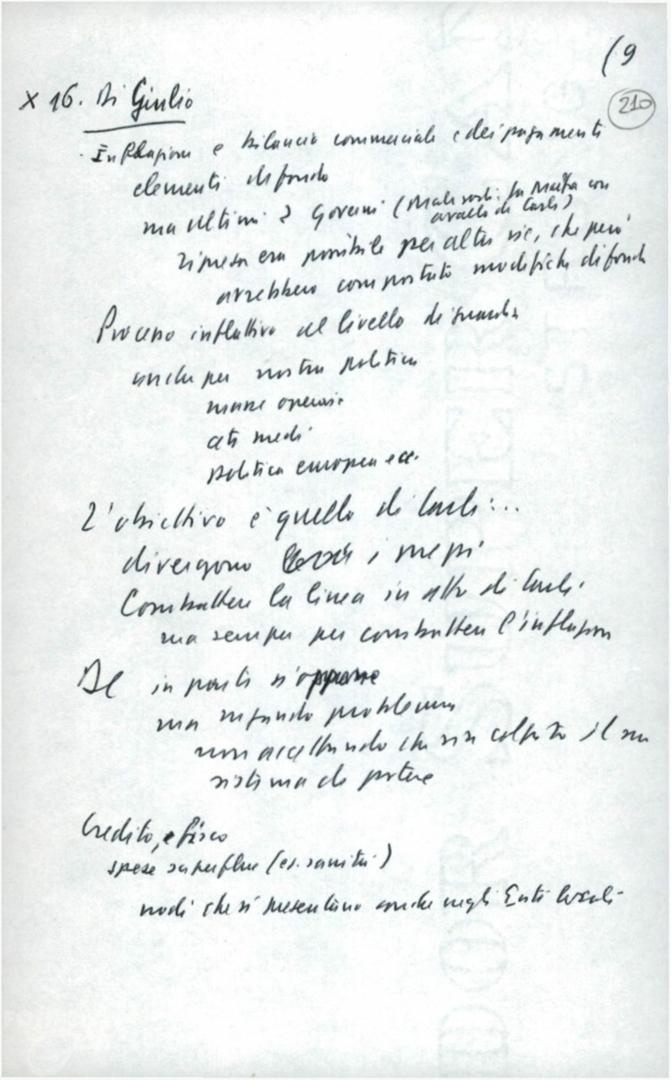 (9
210
x 16. Di Giulio
Inflazione e bilancia commerciale e dei pagamenti
elementi di fondo
ma ultimi 2 Governi (Malagodi - La Malfa con
avallo di Carli)
ripresa era possibile per altre vie, che però
avrebbero comportato modifiche di fondo
Processo inflattivo al livello di guardia
anche per nostra politica
masse operaie
ceti medi
politica europea ecc.
L'obiettivo è quello di Carli...
divergono i mezzi
Combattere la linea in atto di Carli
ma sempre per combattere l'inflazione
DC in parte si oppone
ma
non accettando che sia colpito il suo
sistema di potere
Credito, e fisco
spese superflue (es. sanità)
nodi che si presentano anche negli Enti locali